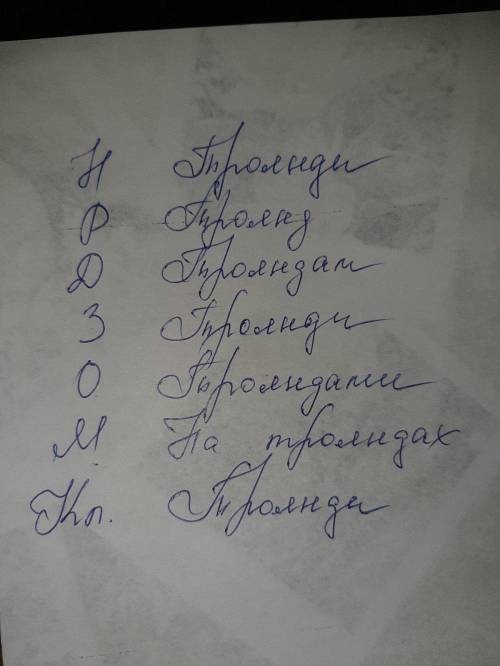 Н Троянди
Р Троянд
Д Трояндам
З Троянди
О Трояндами
М На трояндах
Кл. Троянди